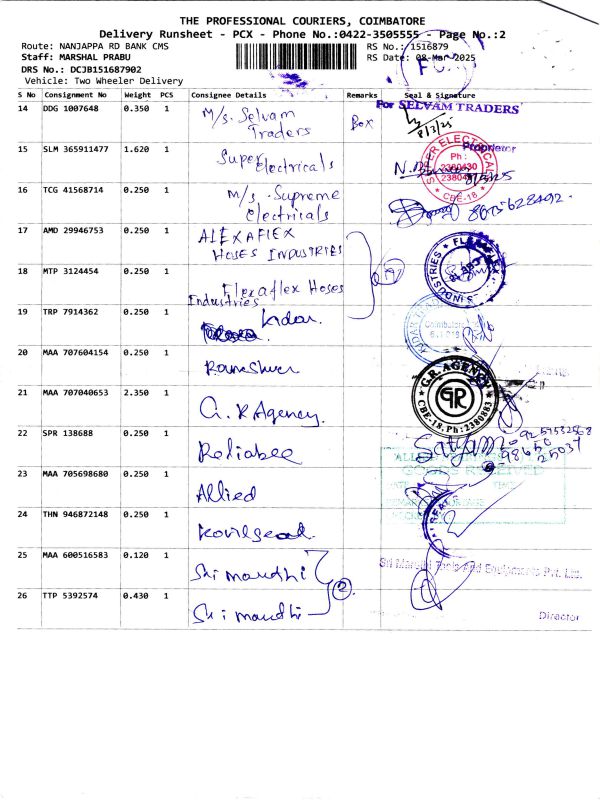 THE PROFESSIONAL COURIERS, COIMBATORE
Delivery Runsheet - PCX - Phone No.:0422-3505555 - Page No.:2
Route: NANJAPPA RD BANK CMS
RS No.: 1516879
Staff: MARSHAL PRABU
RS Date: 08-Mar-2025
DRS No.: DCJB151687902
Vehicle: Two Wheeler Delivery
S No Consignment No Weight PCS Consignee Details Remarks Seal & Signature
14 DDG 1007648 0.350 1 M/s. Selvam Traders Box For SELVAM TRADERS
8/3/25
Proprietor
15 SLM 365911477 1.620 1 Super Electricals
SUPER ELECTRICALS Ph: 2380430 CBE-18
16 TCG 41568714 0.250 1 M/s. Supreme electricals
17 AMD 29946753 0.250 1 ALEXAFLEX HOSES INDUSTRIES
18 MTP 3124454 0.250 1 Flexaflex Hoses Industries
19 TRP 7914362 0.250 1 Kidar.
20 MAA 707604154 0.250 1 Rameshwer
21 MAA 707040653 2.350 1 G.R Agency.
G.R. AGENCY GR CBE-18, Ph: 2380883
22 SPR 138688 0.250 1 Reliabee
Satyam
98650 25037
23 MAA 705698680 0.250 1 Allied
GOODS RECEIVED
24 THN 946872148 0.250 1 Kovilseal
25 MAA 600516583 0.120 1 Sri maruthi
2
Sri Maruthi Tools And Equipments Pvt. Ltd.
26 TTP 5392574 0.430 1 Sri maruthi
Director